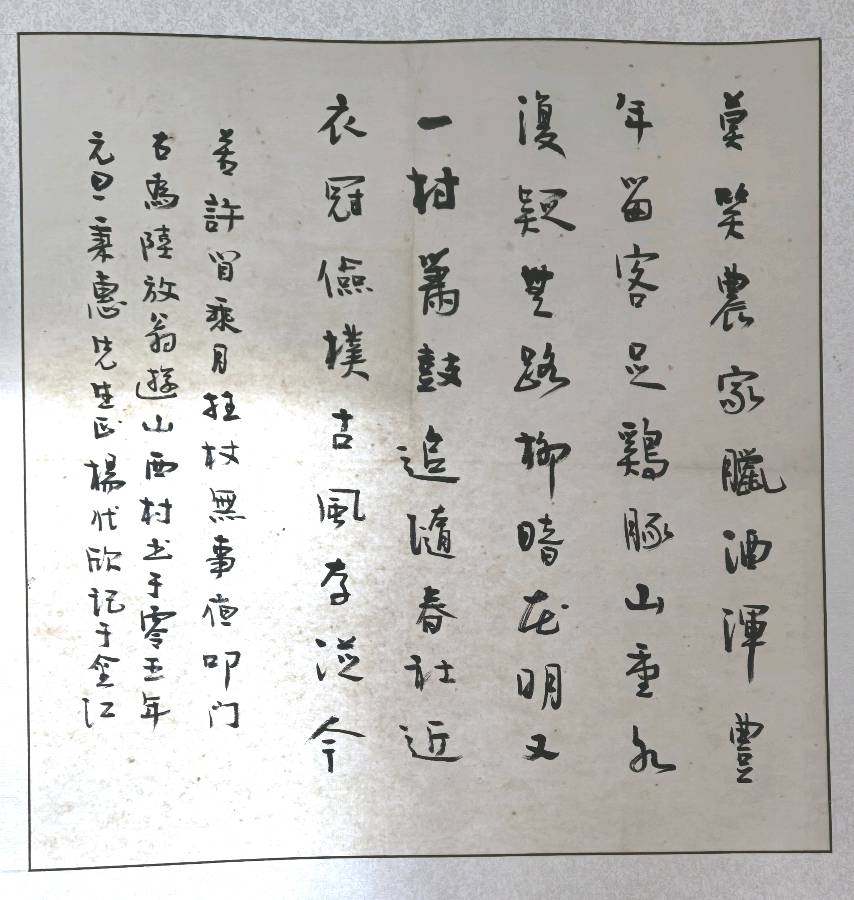 莫笑農家臘酒渾豐
年留客足鷄豚山重水
復疑無路柳暗花明又
一村蕭鼓追隨春社近
衣冠儉樸古風存從今
若許閒乘月拄杖無事夜叩门
右爲陸放翁遊山西村书于零五年
元旦秉惠先生正楊代欣记于金江